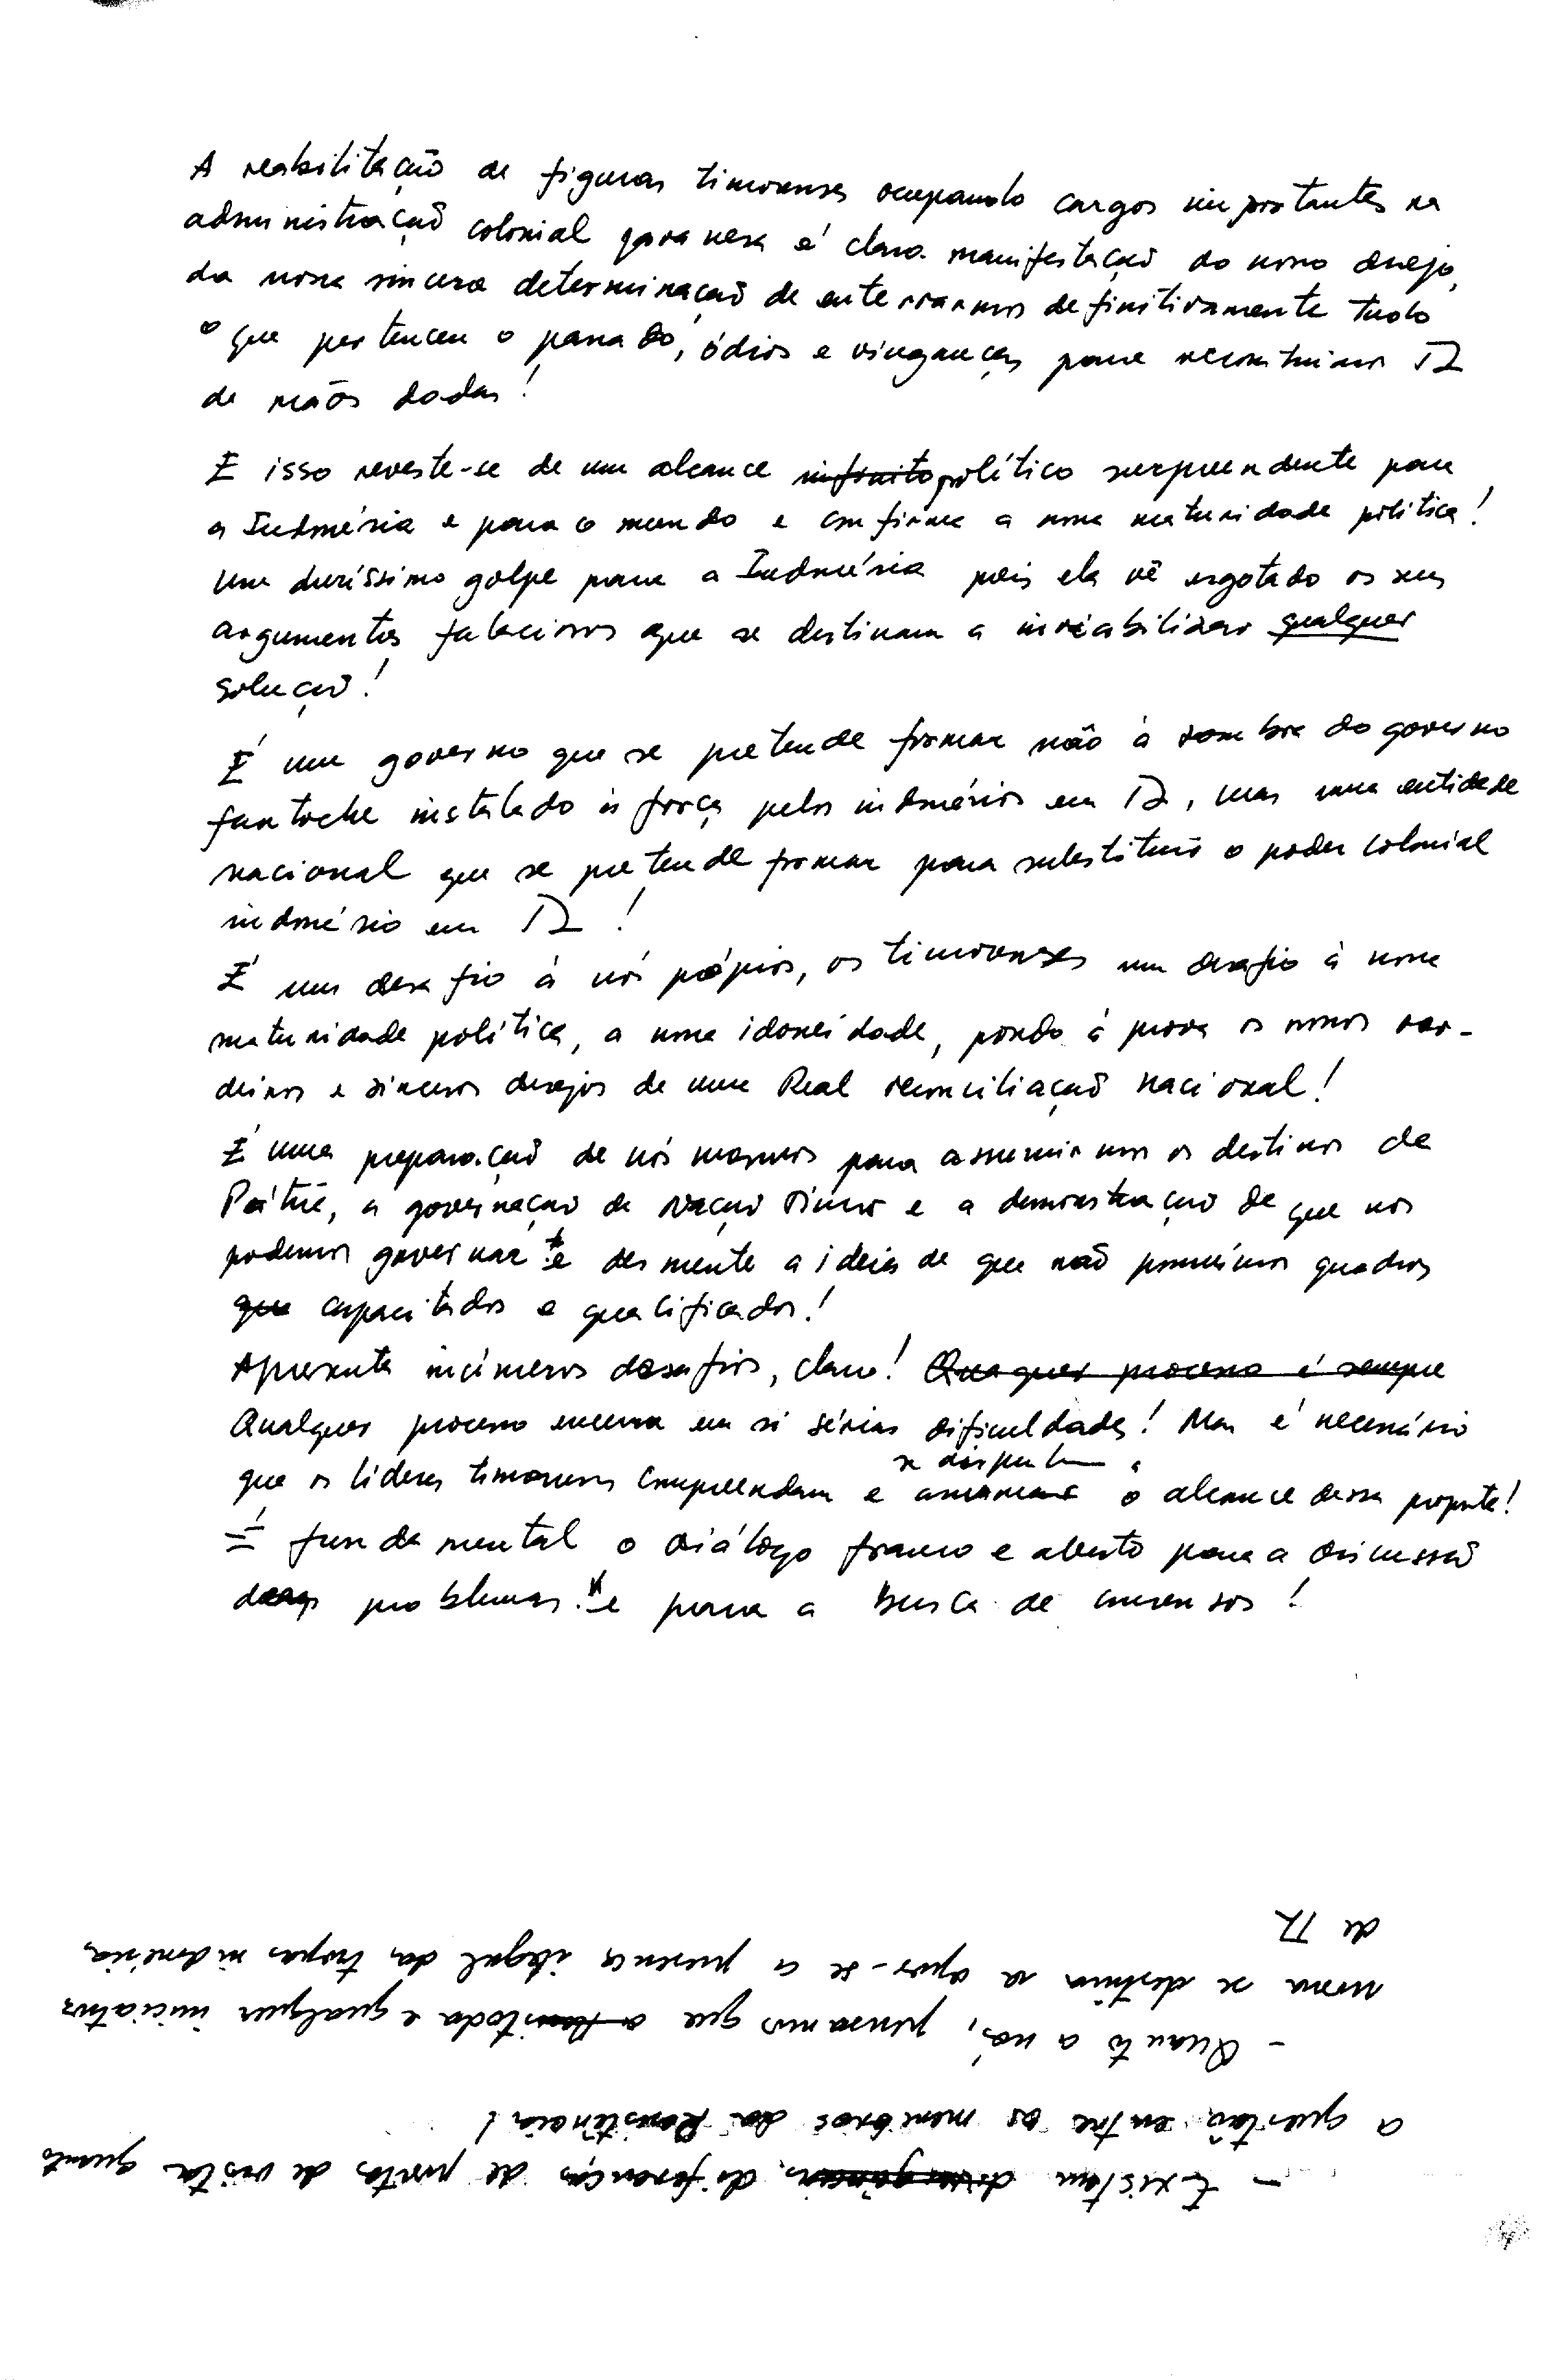 A reabilitação de figuras timorenses ocupando cargos importantes na
administração colonial javanesa é clara manifestação do nosso desejo,
da nossa sincera determinação de enterrarmos definitivamente tudo
o que pertenceu o passado, ódios e vinganças para reconstruirmos TL
de mãos dadas!
E isso reveste-se de um alcance infinito político surpreendente para
a Indonésia e para o mundo e confirma a nossa maturidade política!
Um duríssimo golpe para a Indonésia pois ela vê esgotado os seus
argumentos falaciosos que se destinam a inviabilizar qualquer
solução!
É um governo que se pretende formar não à sombra do governo
fantoche instalado à força pelos indonésios em TL, mas uma entidade
nacional que se pretende formar para substituir o poder colonial
indonésio em TL!
É um desafio à nós própios, os timorenses um desafio à nossa
maturidade política, a nossa idoneidade, pondo à prova os nossos ver-
deiros e sinceros desejos de uma Real reconciliação nacional!
É uma preparação de nós mesmos para assumirmos os destinos da
Pátria, a governação da Nação e a demonstração de que nós
podemos governar e desmente a ideia de que não possuímos quadros
que capacitados e qualificados!
Apresenta inúmeros desafios, claro! Quaquer processo é sempre
Qualquer processo encerra em si sérias dificuldades! Mas é necessário
se disputem
que os líderes timorenses compreendam e assumam o alcance dessa proposta!
É fundamental o diálogo franco e aberto para a discussão
problemas e para a busca de consensos!
- Existem divergências, diferenças de pontos de vista quanto
a questão entre os membros da Resistência!
- Quanto a nós, pensamos que a toda e qualquer iniciativa
nossa se destina a opor-se a presença ilegal das tropas indonésias
de TL